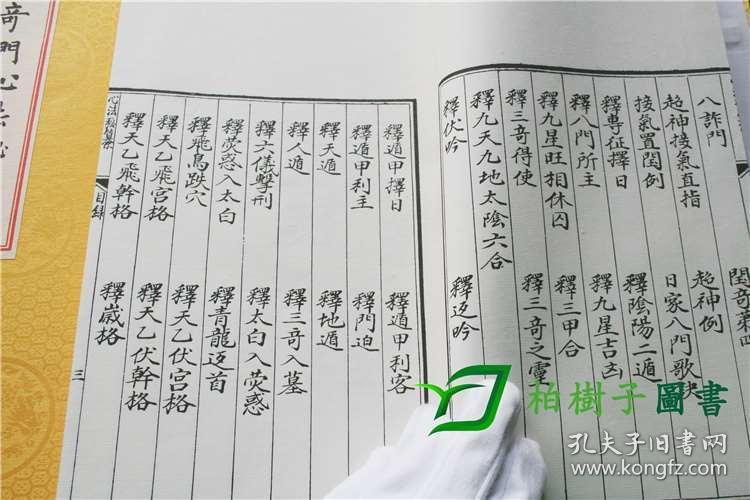 八詐門
超神接氣直指 超神例
接氣置閏例 日家八門歌訣
釋專征擇日 釋陰陽二遁
釋八門所主 釋九星吉凶
釋九星旺相休囚 釋三甲合
釋三奇得使 釋三奇之靈
釋九天九地太陰六合
釋伏吟 釋返吟
釋遁甲擇日 釋遁甲利客
釋遁甲利主 釋門迫
釋天遁 釋地遁
釋人遁 釋三奇入墓
釋六儀擊刑 釋太白入熒惑
釋熒惑入太白 釋青龍返首
釋飛鳥跌穴 釋天乙伏宮格
釋天乙飛宮格 釋天乙伏幹格
釋天乙飛幹格 釋歲格
心法 目錄 三
奇門心法
柏樹子圖書
孔夫子旧书网
www.kongfz.com